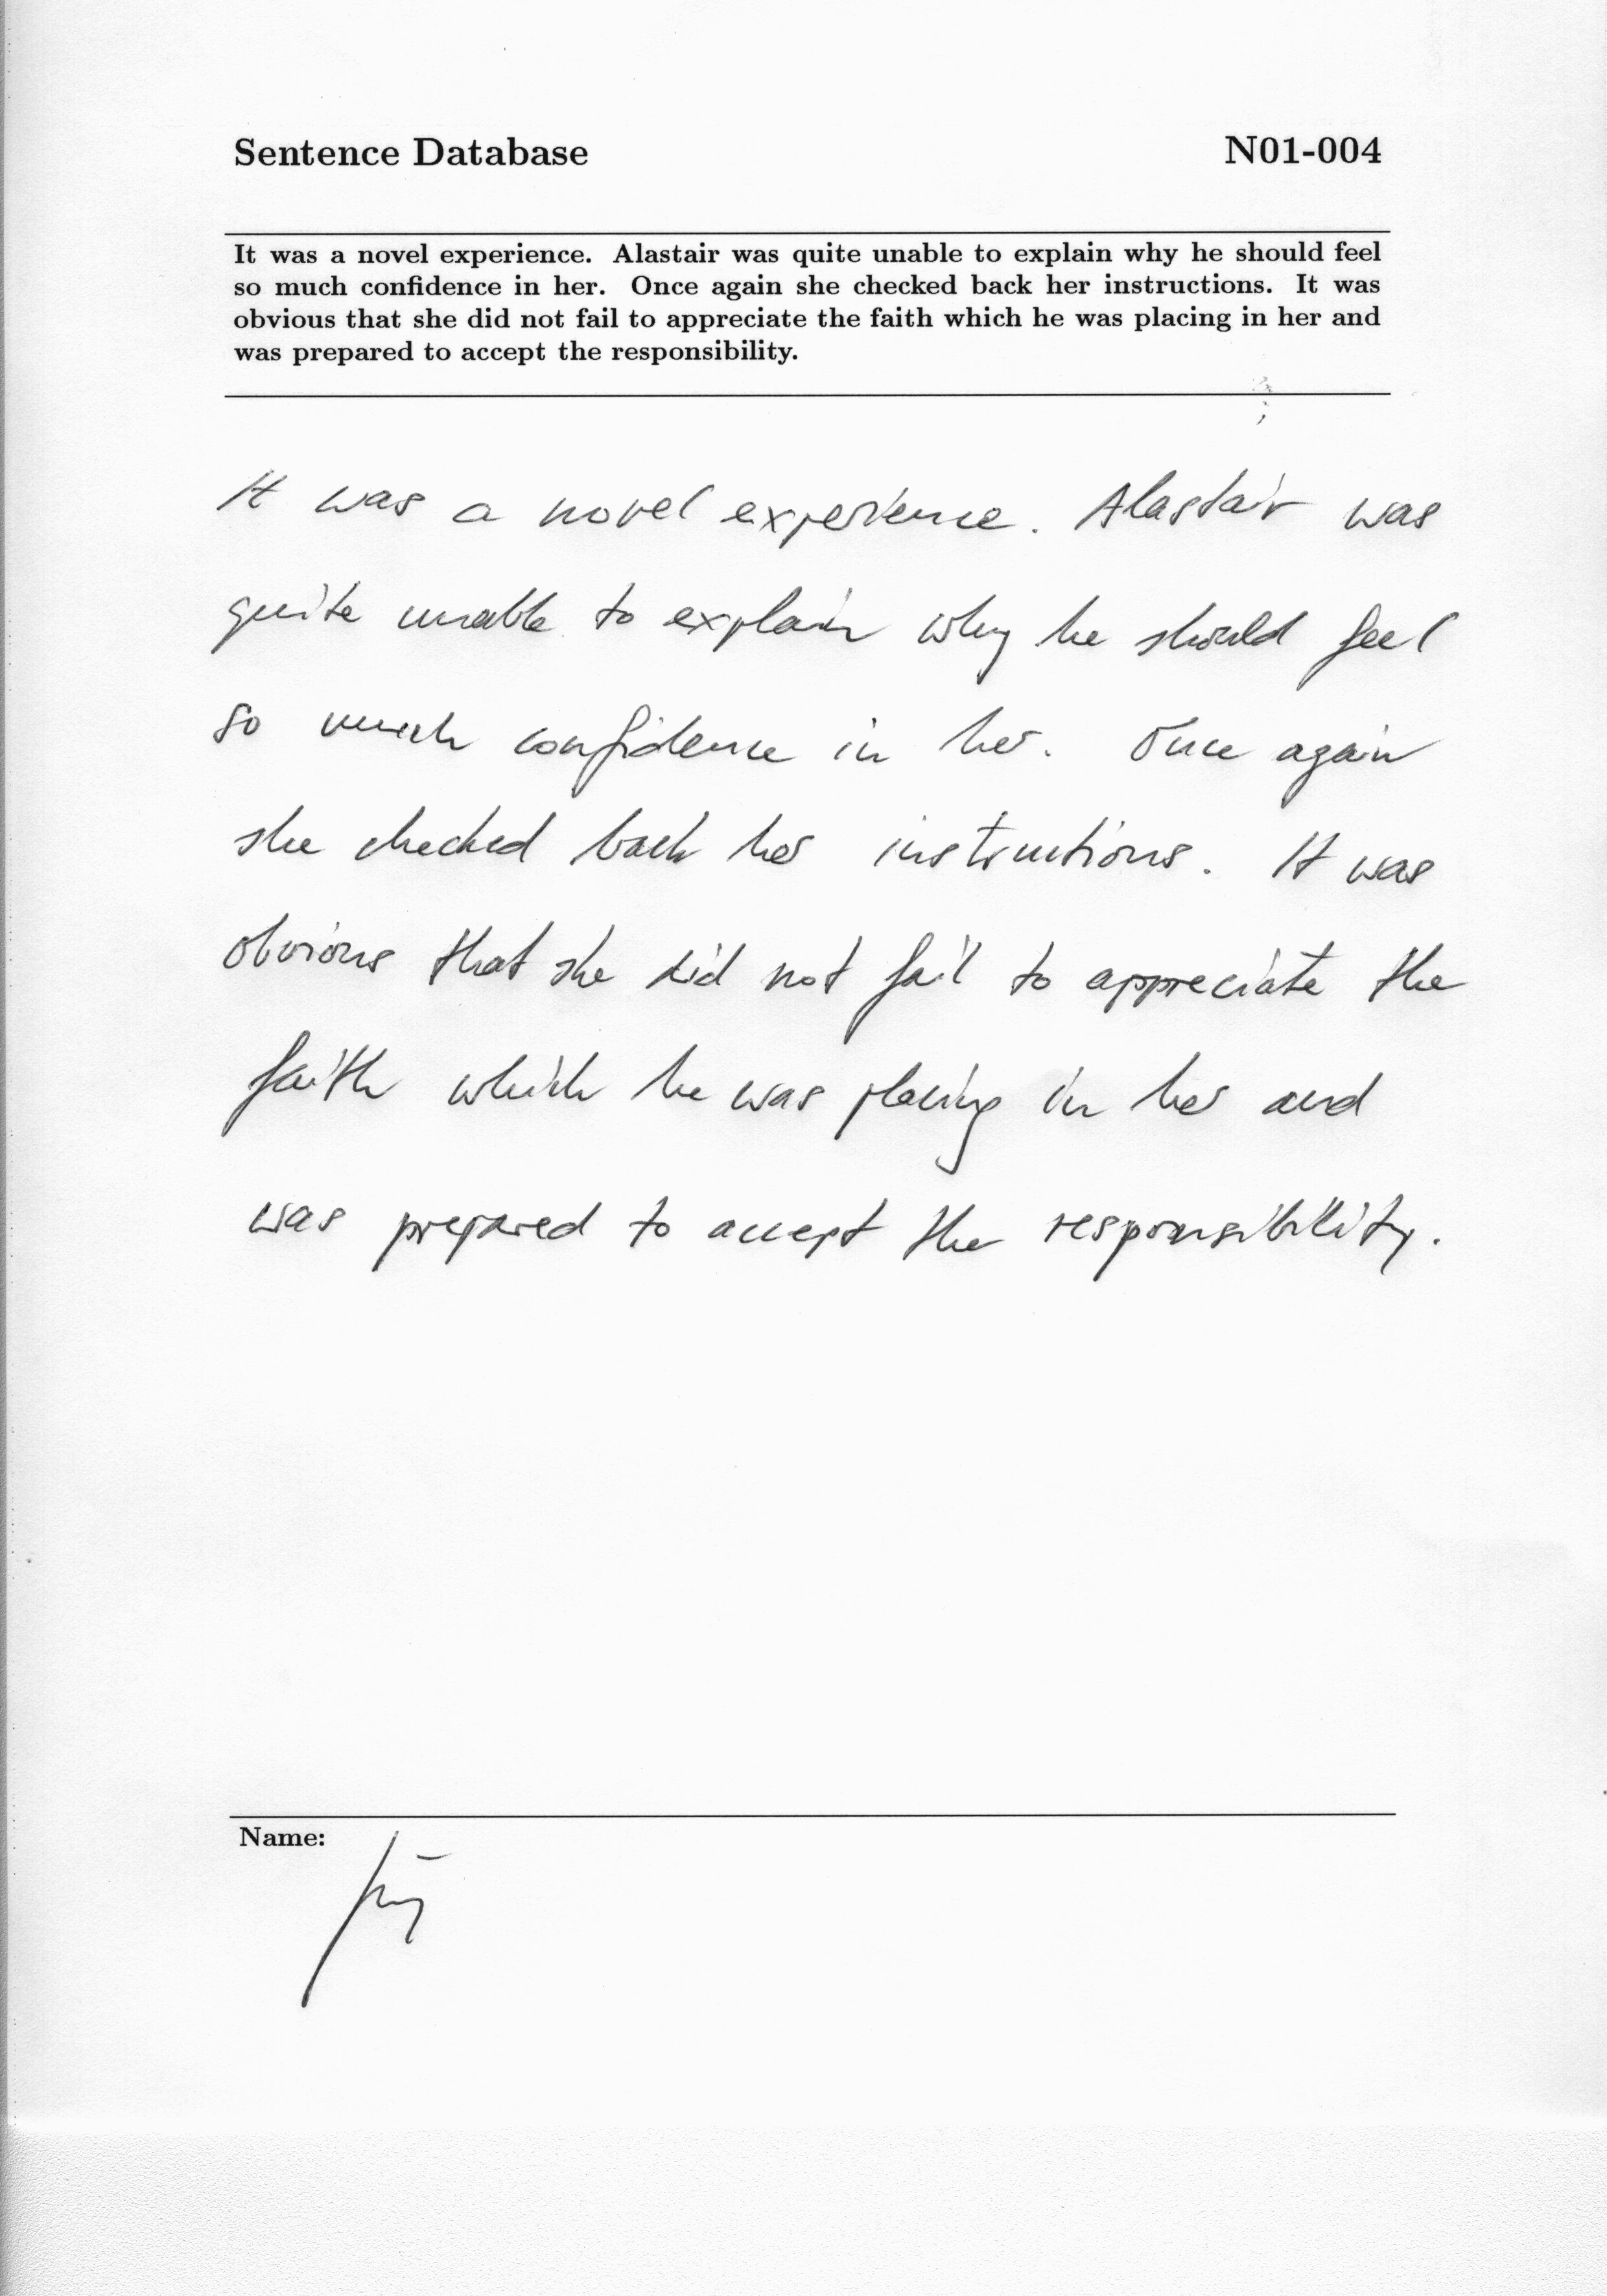 Sentence Database N01-004
It was a novel experience. Alastair was quite unable to explain why he should feel
so much confidence in her. Once again she checked back her instructions. It was
obvious that she did not fail to appreciate the faith which he was placing in her and
was prepared to accept the responsibility.
It was a novel experience. Alastair was
quite unable to explain why he should feel
so much confidence in her. Once again
she checked back her instructions. It was
obvious that she did not fail to appreciate the
faith which he was placing in her and
was prepared to accept the responsibility.
Name: